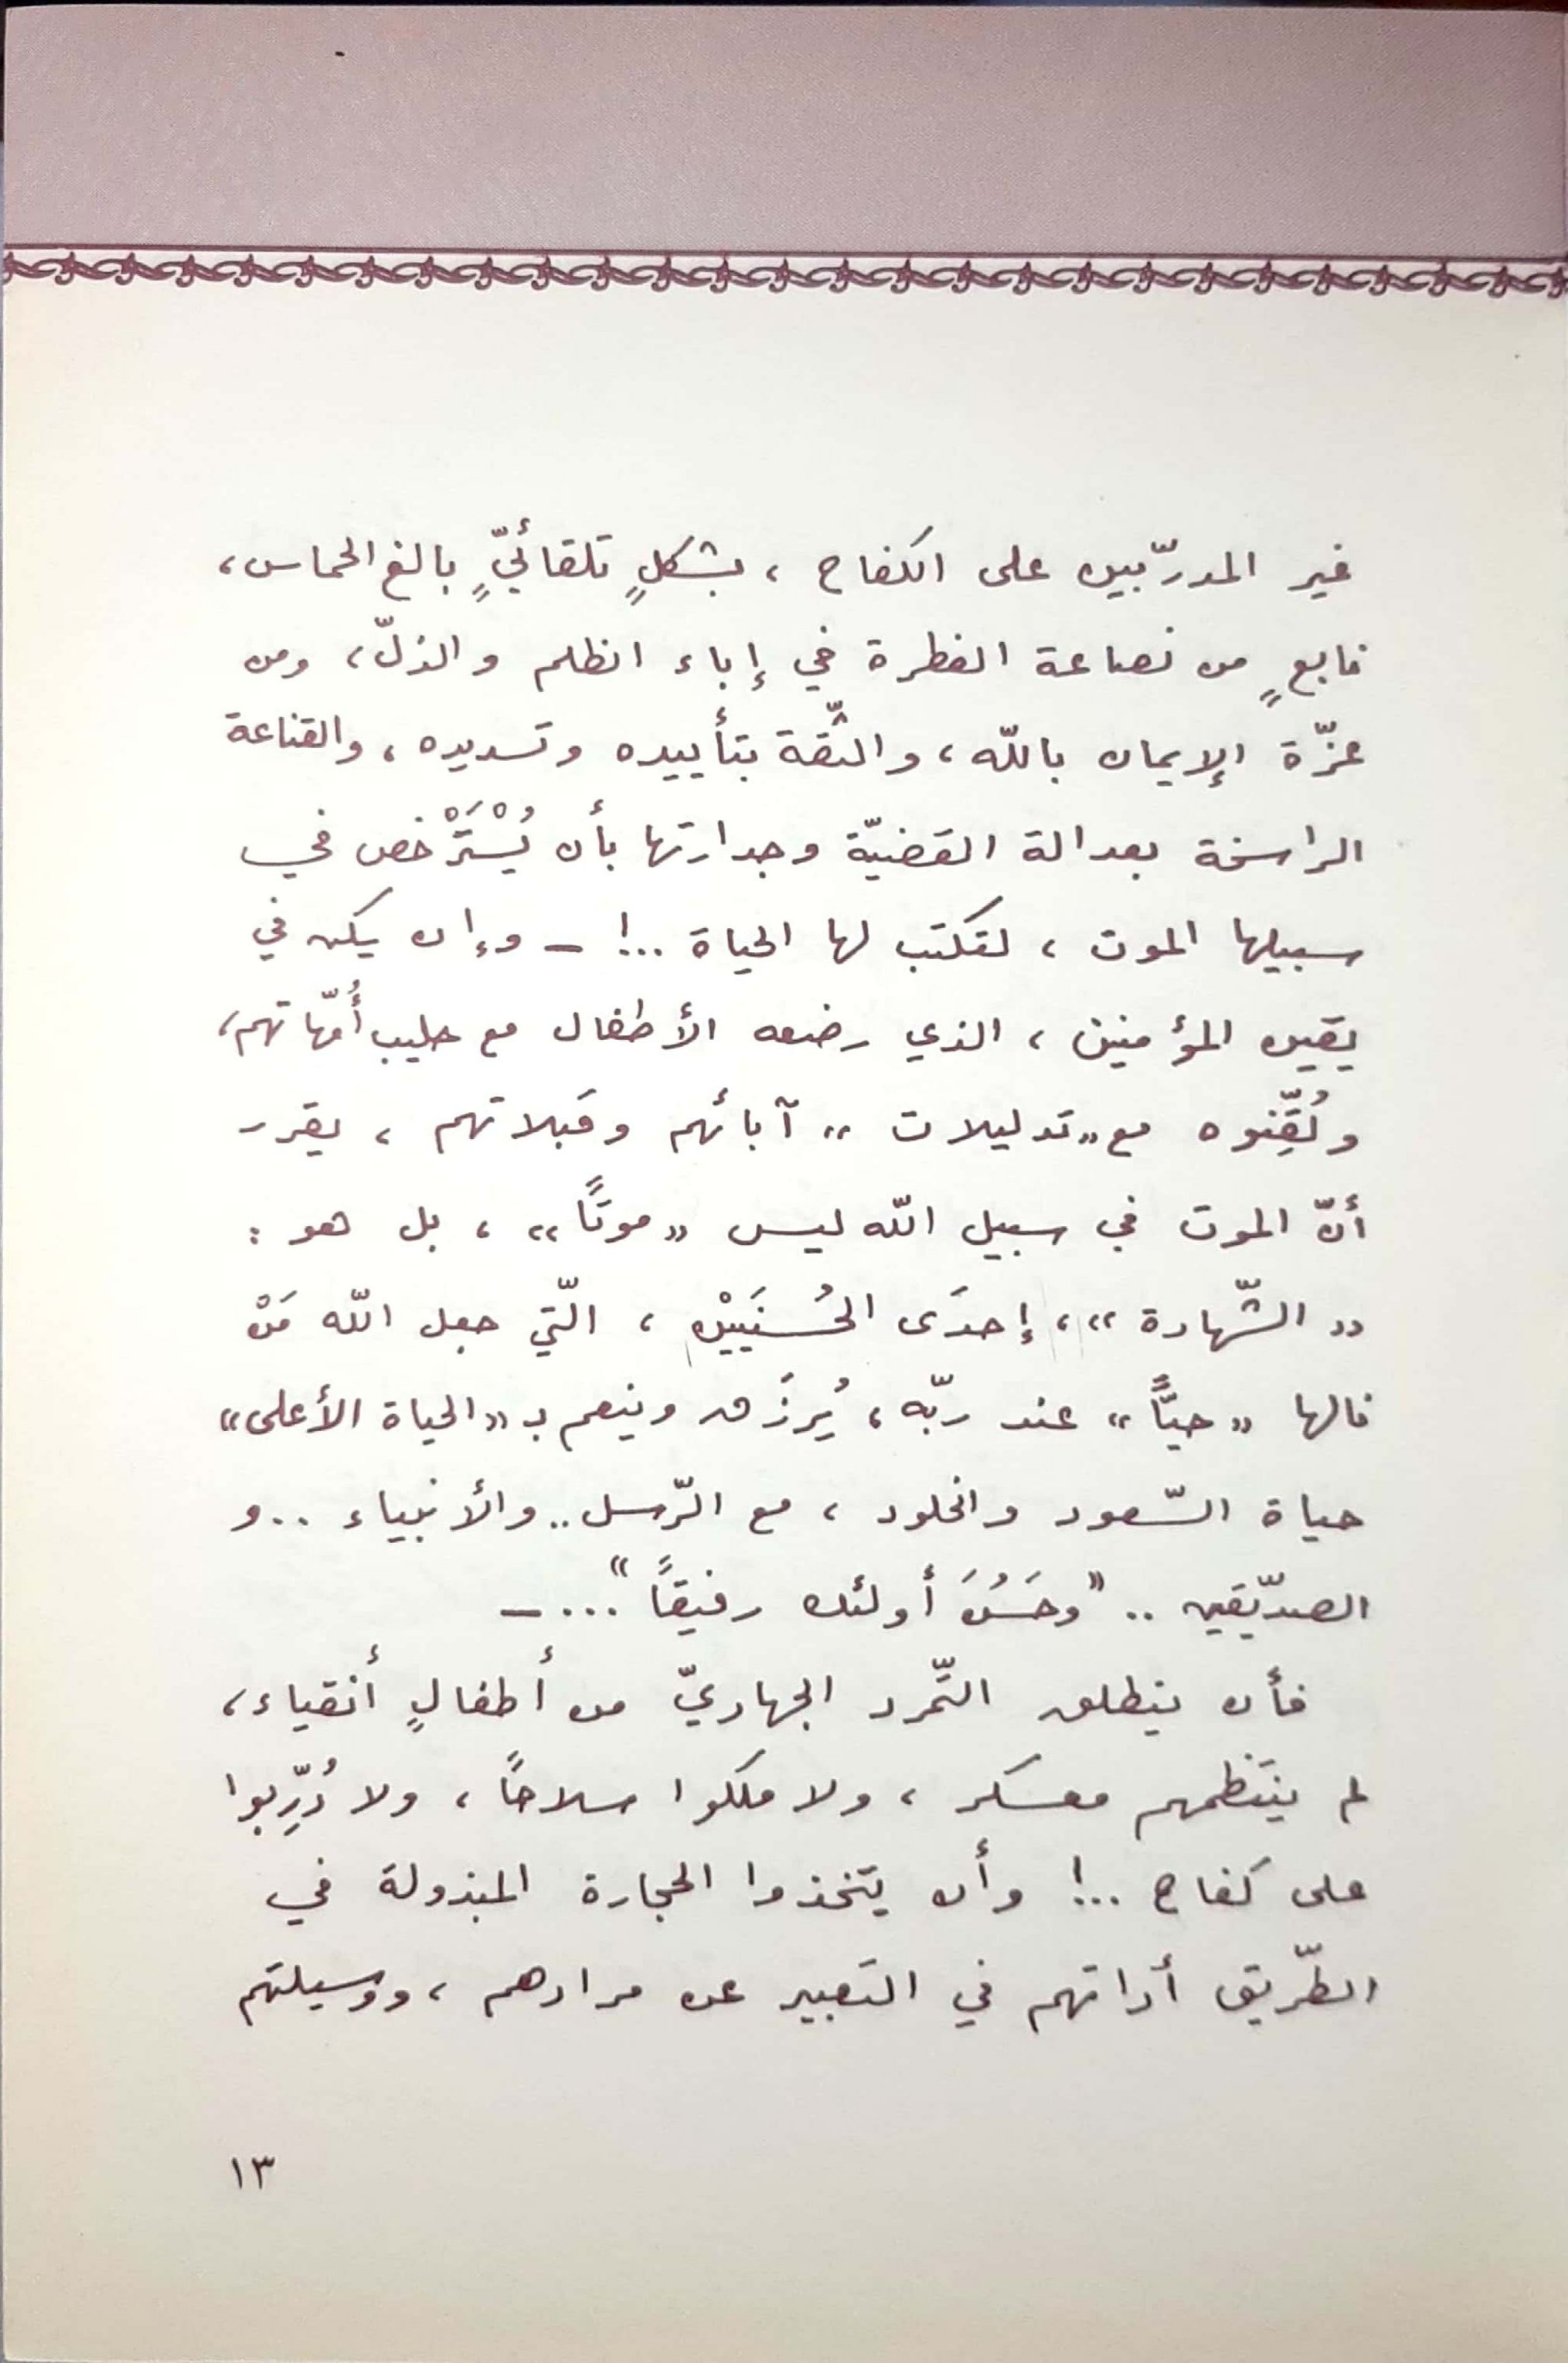 غير المدرّبين على الكفاح ، بشكلٍ تلقائيٍّ بالغ الحماس،
نابعٍ من نصاعة الفطرة في إباء الظلم والذلّ، ومن
عزّة الإيمان باللّه، والثّقة بتأييده وتسديده، والقناعة
الراسخة بعدالة القضيّة وجدارتها بأن يُسْتَرْخص في
سبيلها الموت ، لتكتب لها الحياة ..! – وإن يكن في
يقين المؤمنين ، الذي رضعه الأطفال مع حليب أُمّهاتهم،
ولُقِّنوه مع «تدليلات» آبائهم وقبلاتهم ، يقرر
أنّ الموت في سبيل اللّه ليس «موتًا» ، بل هو :
«الشّهادة»، إحدَى الحُسنَيَيْن ، الّتي جعل اللّه مَنْ
نالها «حيًّا» عند ربّه، يُرزَق وينعم بـ«الحياة الأعلى»
حياة السّعود والخلود ، مع الرّسل.. والأنبياء ..و
الصدّيقين .. "وحَسُنَ أولئك رفيقًا"... –
فأن ينطلق التّمرد الجهاديّ من أطفالٍ أنقياء،
لم ينتظمهم معسكر ، ولا ملكوا سلاحًا ، ولا دُرِّبوا
على كفاح ..! وأن يتخذوا الحجارة المبذولة في
الطّريق أداتهم في التعبير عن مرادهم ، ووسيلتهم
١٣